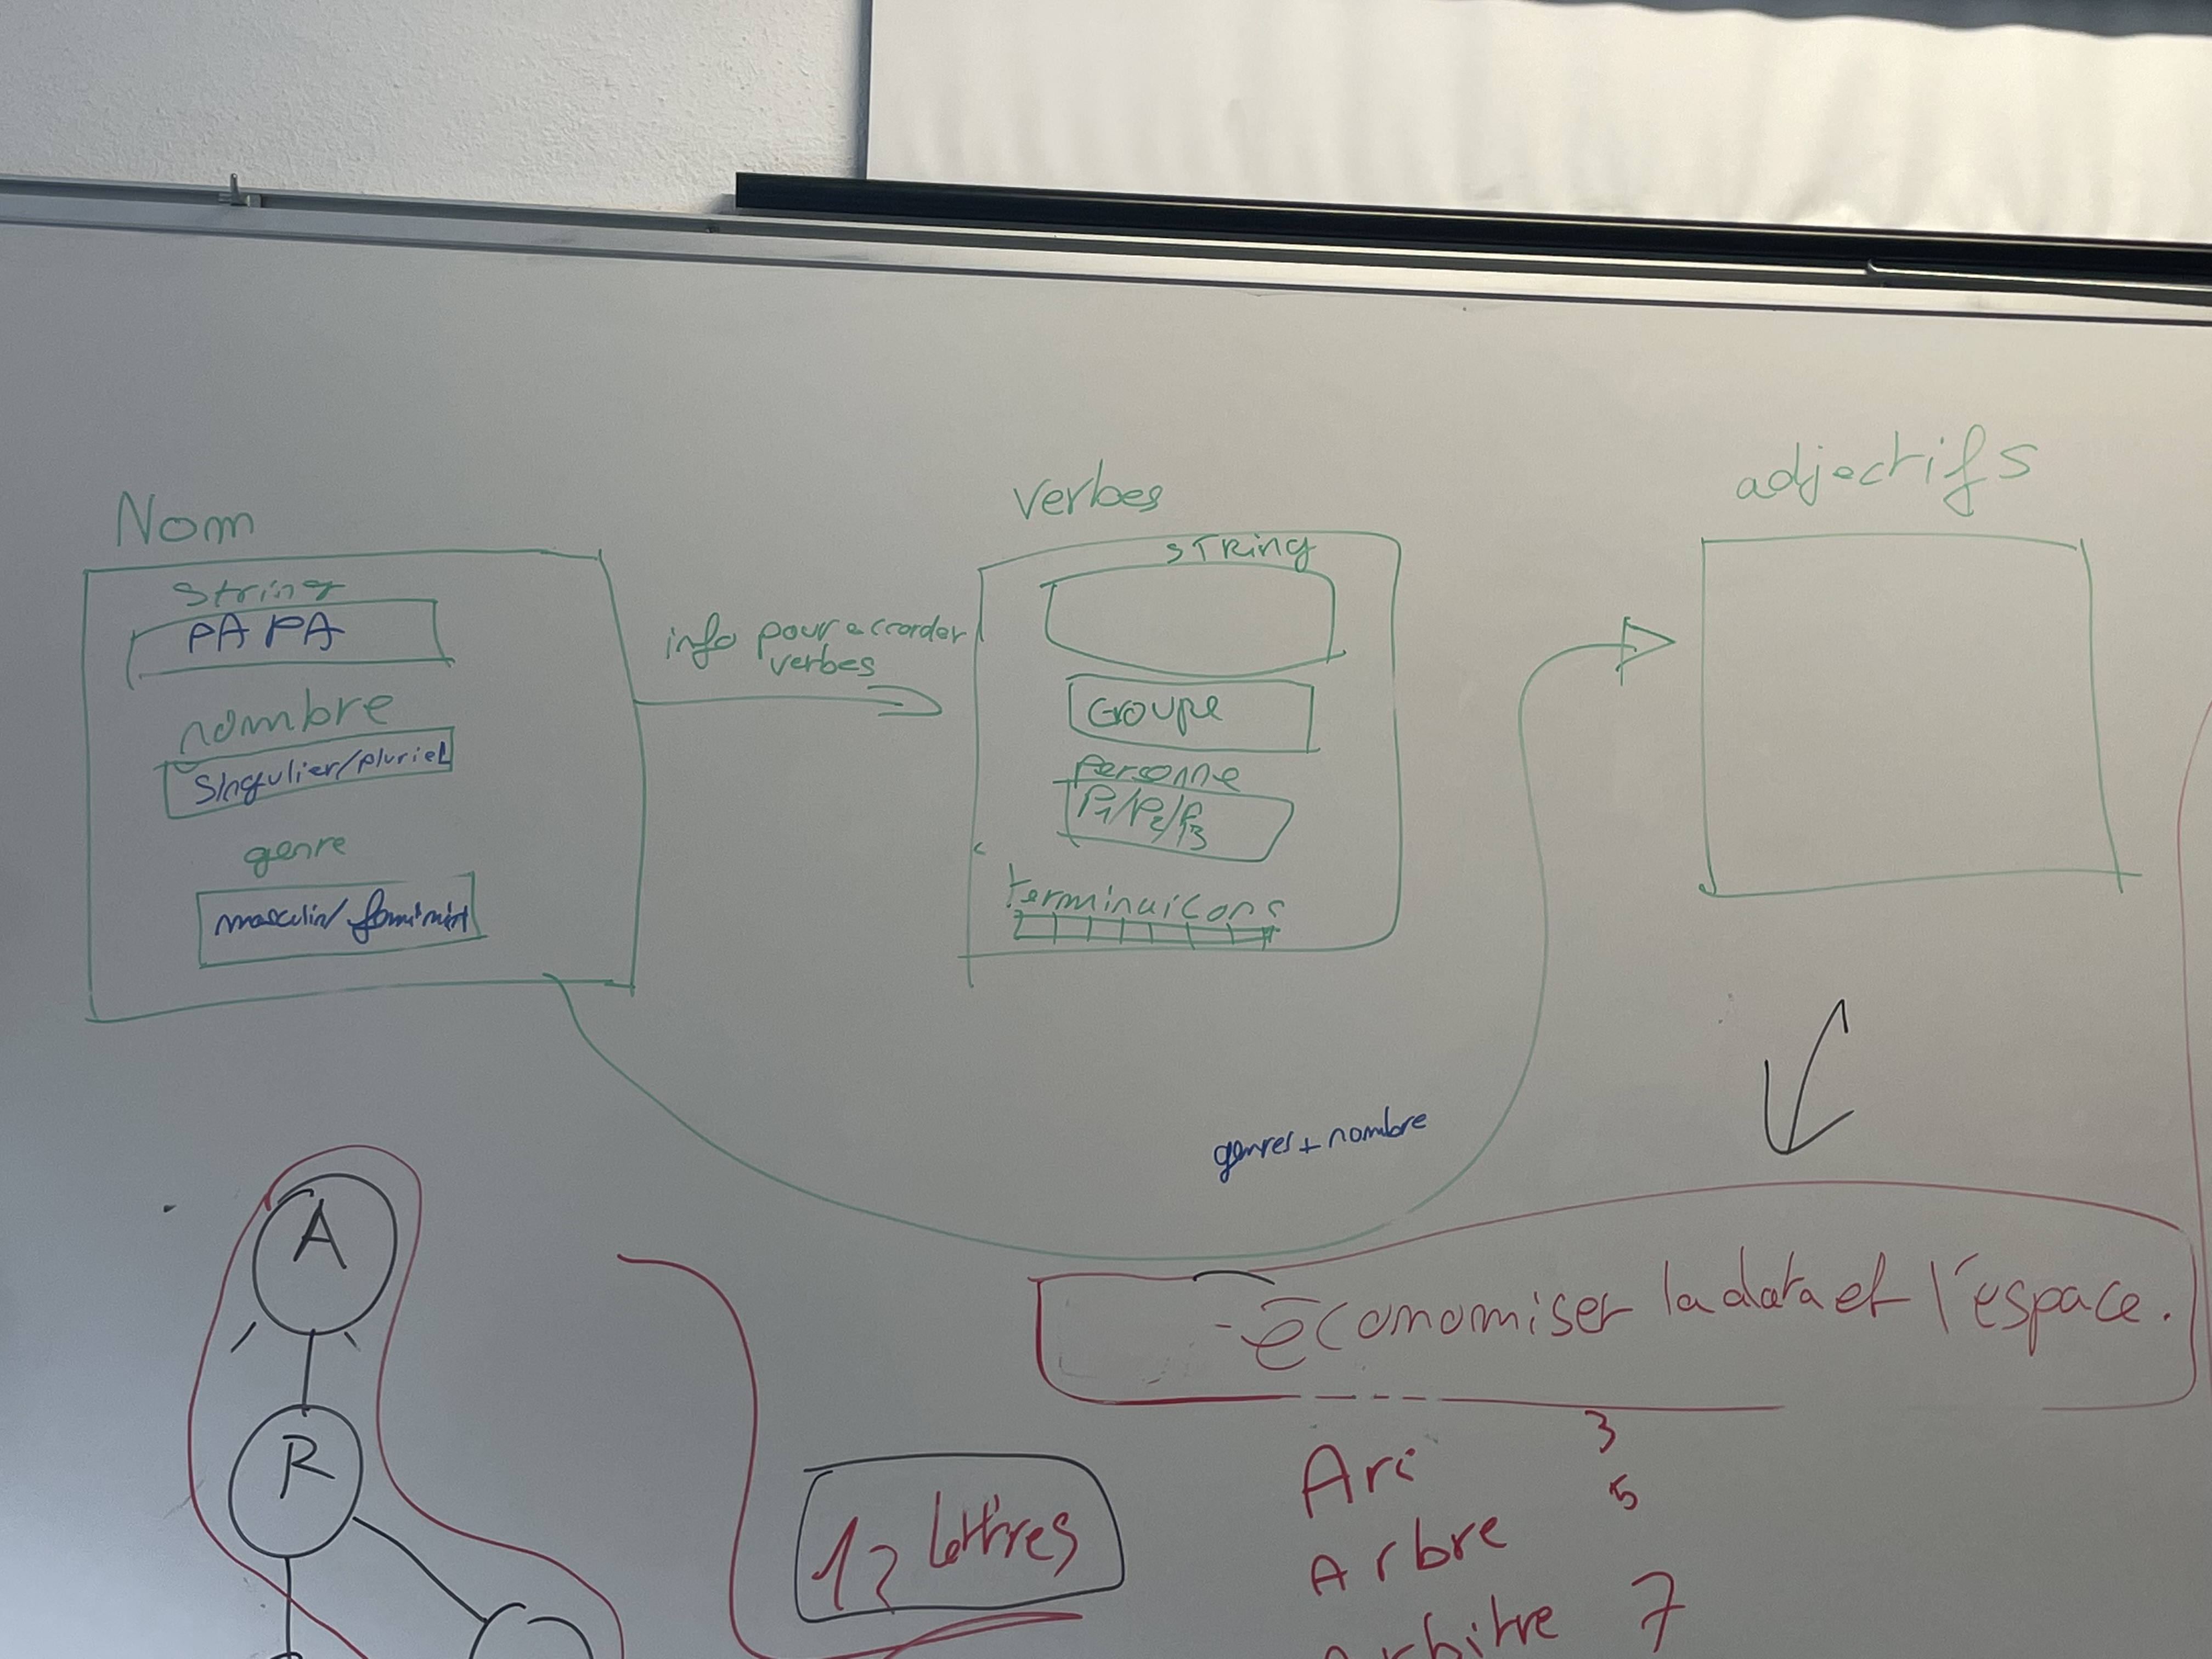 Nom
String
PAPA
nombre
Singulier/pluriel
genre
masculin/
info pour accorder
verbes
Verbes
sTRing
Groupe
Personne
P1/P2/P3
terminaicons
adjectifs
genres + nombre
- économiser la data et l'espace.
A
R
12 lettres
Arc 3
Arbre 5
Arbitre 7